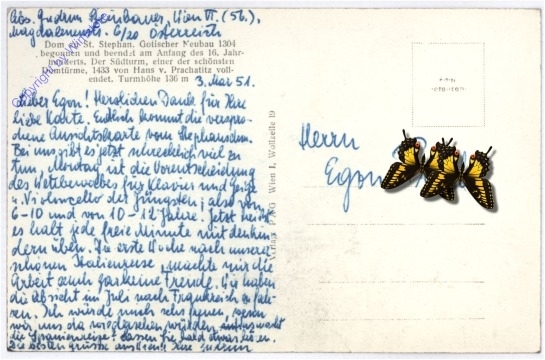 Abs. Gudrun Steinbauer, Wien VI (56.),
Magdalenenstr. 6/20 Österreich
Dom zu St. Stephan. Gotischer Neubau 1304
begonnen und beendet am Anfang des 16. Jahr-
hunderts. Der Südturm, einer der schönsten
Domtürme, 1433 von Hans v. Prachatitz voll-
endet. Turmhöhe 136 m
3. Mai 51.
Lieber Egon! Herzlichen Dank für Ihre
liebe Karte. Endlich kommt die verspro-
chene Ansichtskarte vom Stephansdom.
Bei uns gibt es jetzt schrecklich viel zu
tun, Montag ist die Vorentscheidung
des Wettbewerbes für Klavier und Geige
u. Violoncello der Jüngsten; also von
6-10 und von 10-12 Jahre. Jetzt heißt
es halt jede freie Minute mit den Kin-
dern üben. Die erste Woche nach unserer
schönen Italienreise machte mir die
Arbeit auch gar keine Freude. Wir haben
die Absicht im Juli nach Frankreich zu fah-
ren. Ich würde mich sehr freuen, wenn
wir uns da wiedersehen würden.
die Spanienreise? Lassen Sie bald etwas
Die besten Grüße
Herrn
Egon
Verlag Wien I, Wollzeile 19
Copyright by